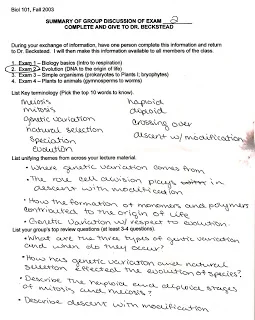 Biol 101, Fall 2003
SUMMARY OF GROUP DISCUSSION OF EXAM 2
COMPLETE AND GIVE TO DR. BECKSTEAD
During your exchange of information, have one person complete this information and return
to Dr. Beckstead. I will then make this information available to all members of the class.
1. Exam 1 – Biology basics (Intro to respiration)
2. Exam 2 – Evolution (DNA to the origin of life)
3. Exam 3 – Simple organisms (prokaryotes to Plants I; bryophytes)
4. Exam 4 – Plants to animals (gymnosperms to worms)
List Key terminology (Pick the top 10 words to know).
meiosis haploid
mitosis diploid
genetic variation crossing over
natural selection descent w/ modification
speciation
evolution
List unifying themes from across your lecture material.
• Where genetic variation comes from
• The role cell division plays in
descent with modification
• How the formation of monomers and polymers
contributed to the origin of life
• Genetic variation with respect to evolution.
List your group's top review questions (at least 3-4 questions).
• What are the three types of genetic variation
and when do they occur?
• How has genetic variation and natural
selection effected the evolution of species?
• Describe the haploid and diploid stages
of mitosis and meiosis?
• Describe descent with modification